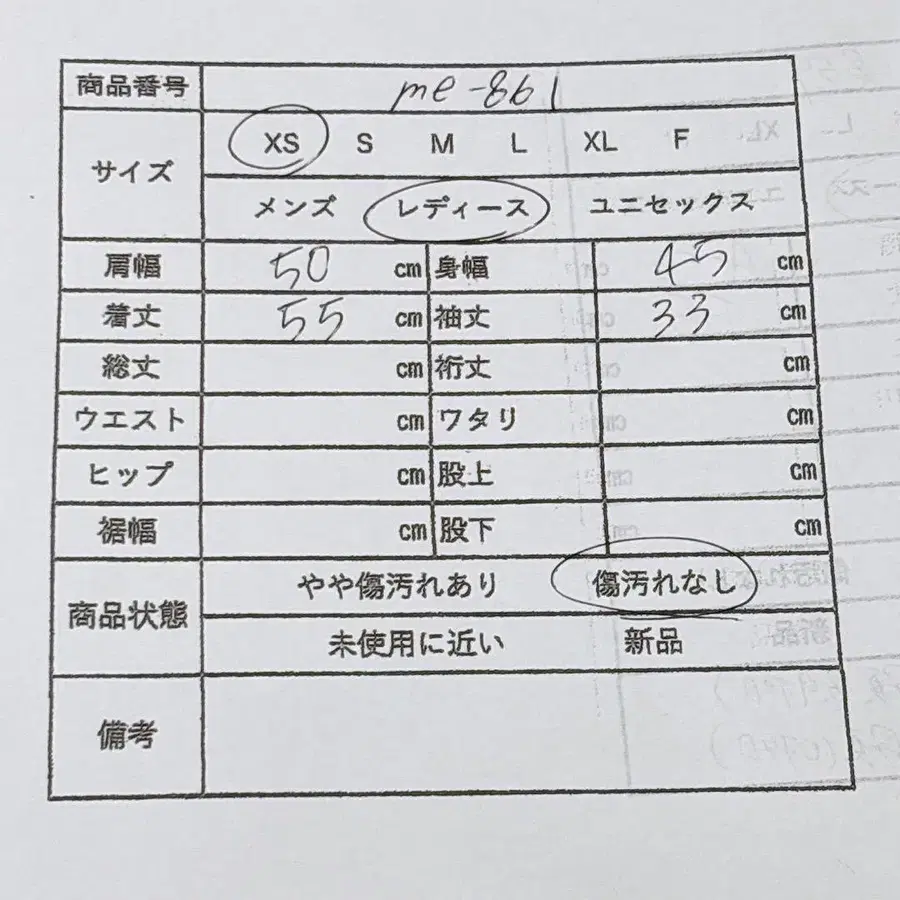 商品番号 me-861
サイズ XS S M L XL F
メンズ レディース ユニセックス
肩幅 50 cm 身幅 45 cm
着丈 55 cm 袖丈 33 cm
総丈 cm 裄丈 cm
ウエスト cm ワタリ cm
ヒップ cm 股上 cm
裾幅 cm 股下 cm
商品状態 やや傷汚れあり 傷汚れなし
未使用に近い 新品
備考